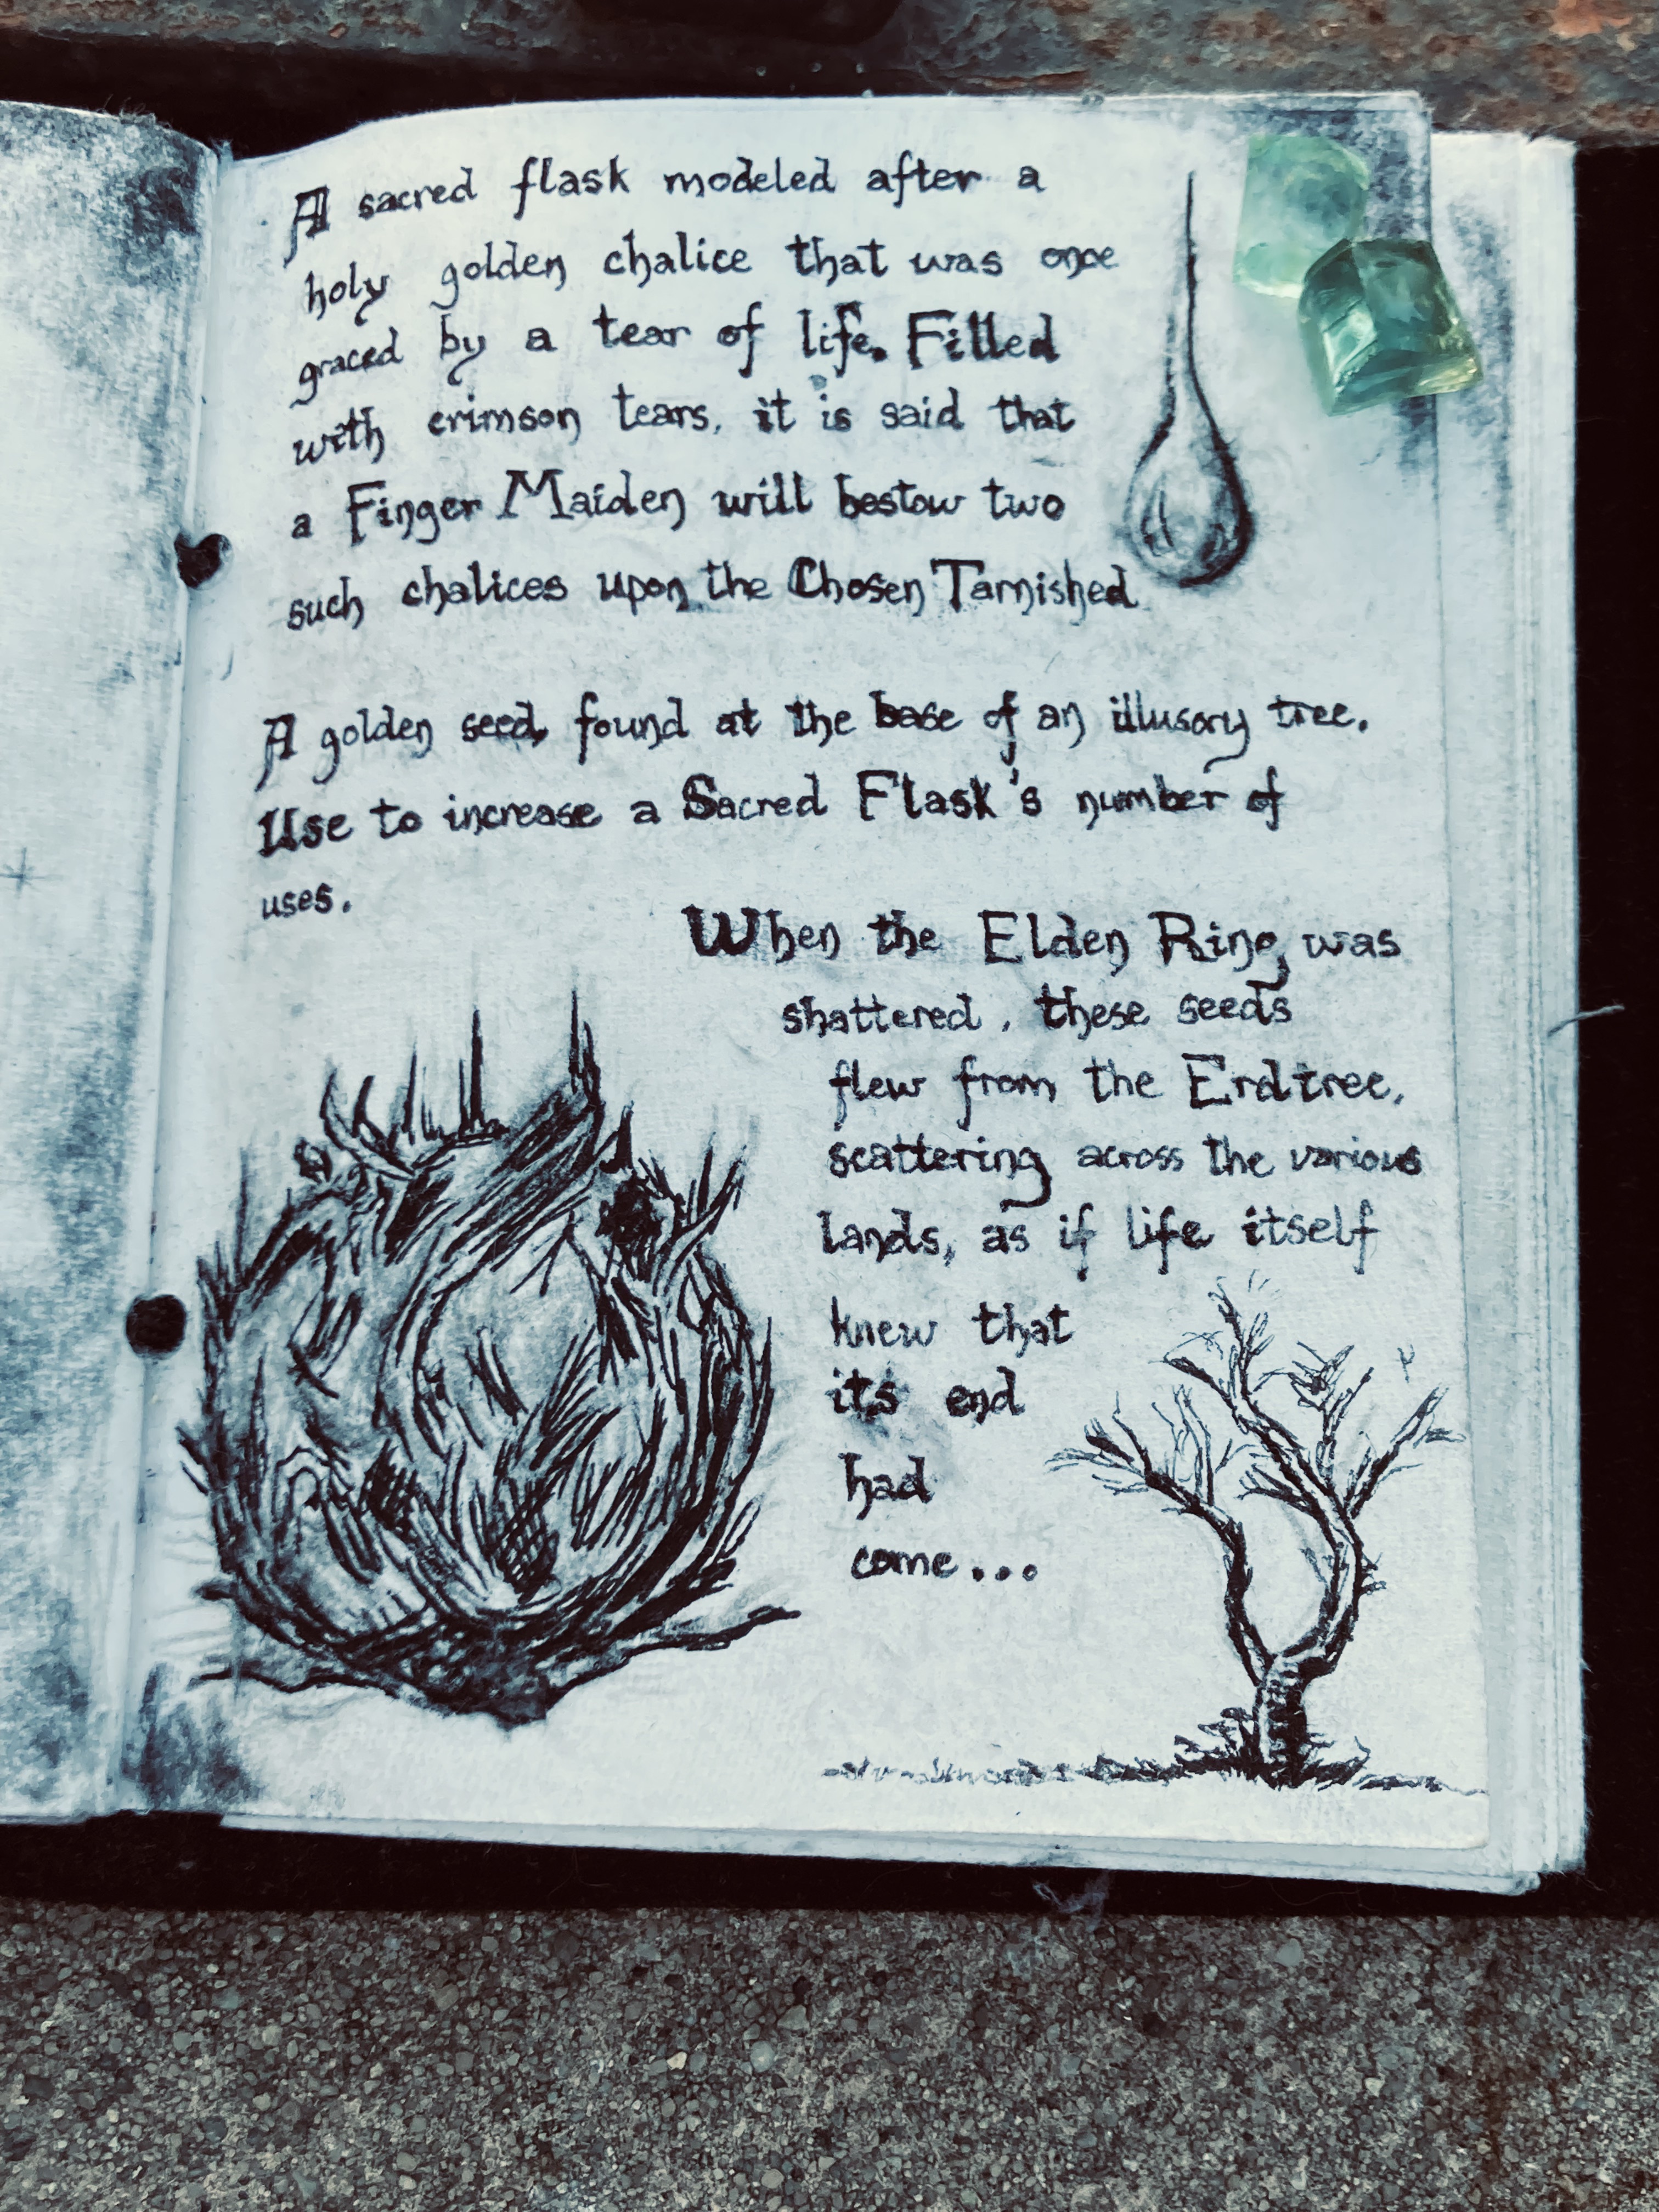 A sacred flask modeled after a
holy golden chalice that was once
graced by a tear of life. Filled
with crimson tears, it is said that
a Finger Maiden will bestow two
such chalices upon the Chosen Tarnished
A golden seed found at the base of an illusory tree.
Use to increase a Sacred Flask's number of
uses.
When the Elden Ring was
shattered, these seeds
flew from the Erdtree,
scattering across the various
lands, as if life itself
knew that
its end
had
come...